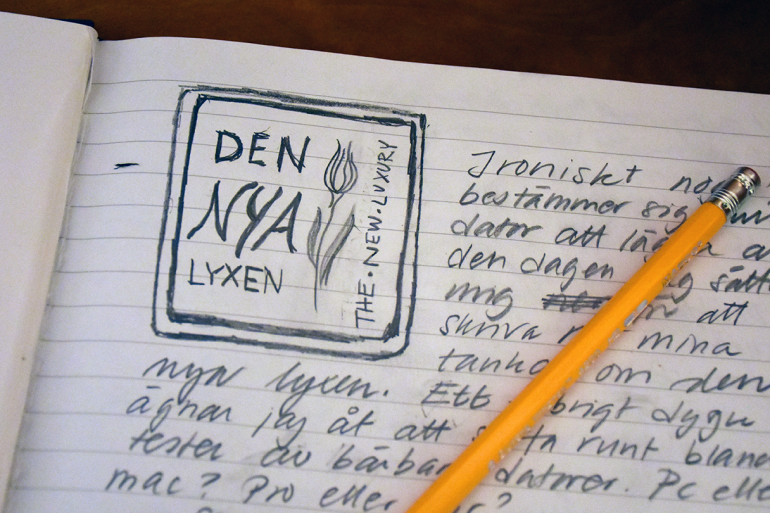 DEN
NYA
LYXEN
THE • NEW • LUXURY
Ironiskt
bestämmer sig
dator att
den dagen sätt
mig att
skriva mina
om den
nya lyxen. Ett dygn
ägnar jag åt att runt bland
tester av bärbar datorer. Pc elle
mac? Pro eller